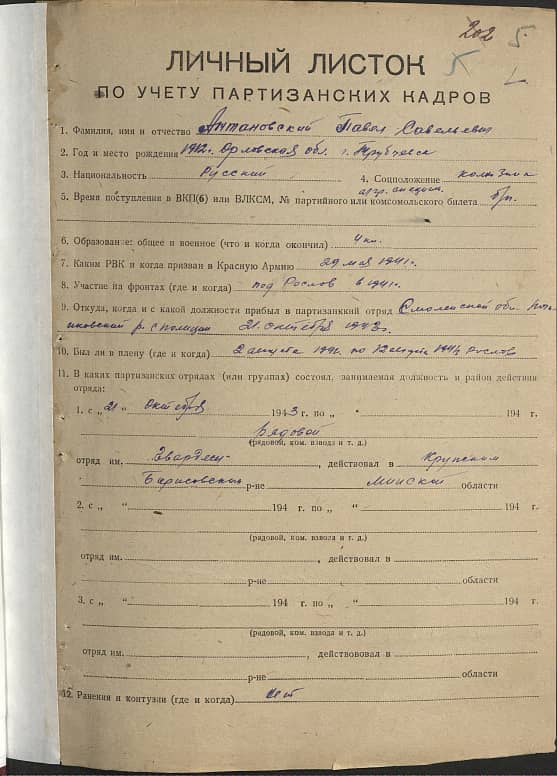 202 5.
ЛИЧНЫЙ ЛИСТОК
ПО УЧЕТУ ПАРТИЗАНСКИХ КАДРОВ
1. Фамилия, имя и отчество Антановский Павел Савельевич
2. Год и место рождения 1912г. Орловская обл. г. Трубчевск
3. Национальность Русский 4. Соцположение колхозник
5. Время поступления в ВКП(б) или ВЛКСМ, № партийного или комсомольского билета б/п.
6. Образование: общее и военное (что и когда окончил) 4 кл.
7. Каким РВК и когда призван в Красную Армию 29 мая 1941г.
8. Участие на фронтах (где и когда) под Рослов в 1941г.
9. Откуда, когда и с какой должности прибыл в партизанккий отряд Смоленской обл.
р. с полиции 21 октября 1943г.
10. Был ли в плену (где и когда) 2 августа 1941г. по 12 Рослов
11. В каких партизанских отрядах (или группах) состоял, занимаемая должность и район действия
отряда:
1. с „ 21 " октября 1943 г. по „ " 194 г.
Рядовой
(рядовой, ком. взвода и т. д.)
отряд им. , действовал в Крупском
Борисовском р-не Минской области
2. с „ " 194 г. по „ " 194 г.
(рядовой, ком. взвода и т. д.)
отряд им. , действовал в
р-не области
3. с „ " 194 г. по „ " 194 г.
(рядовой, ком. взвода и т. д.)
отряд им. , действововал в
р-не области
12. Ранения и контузии (где и когда) нет